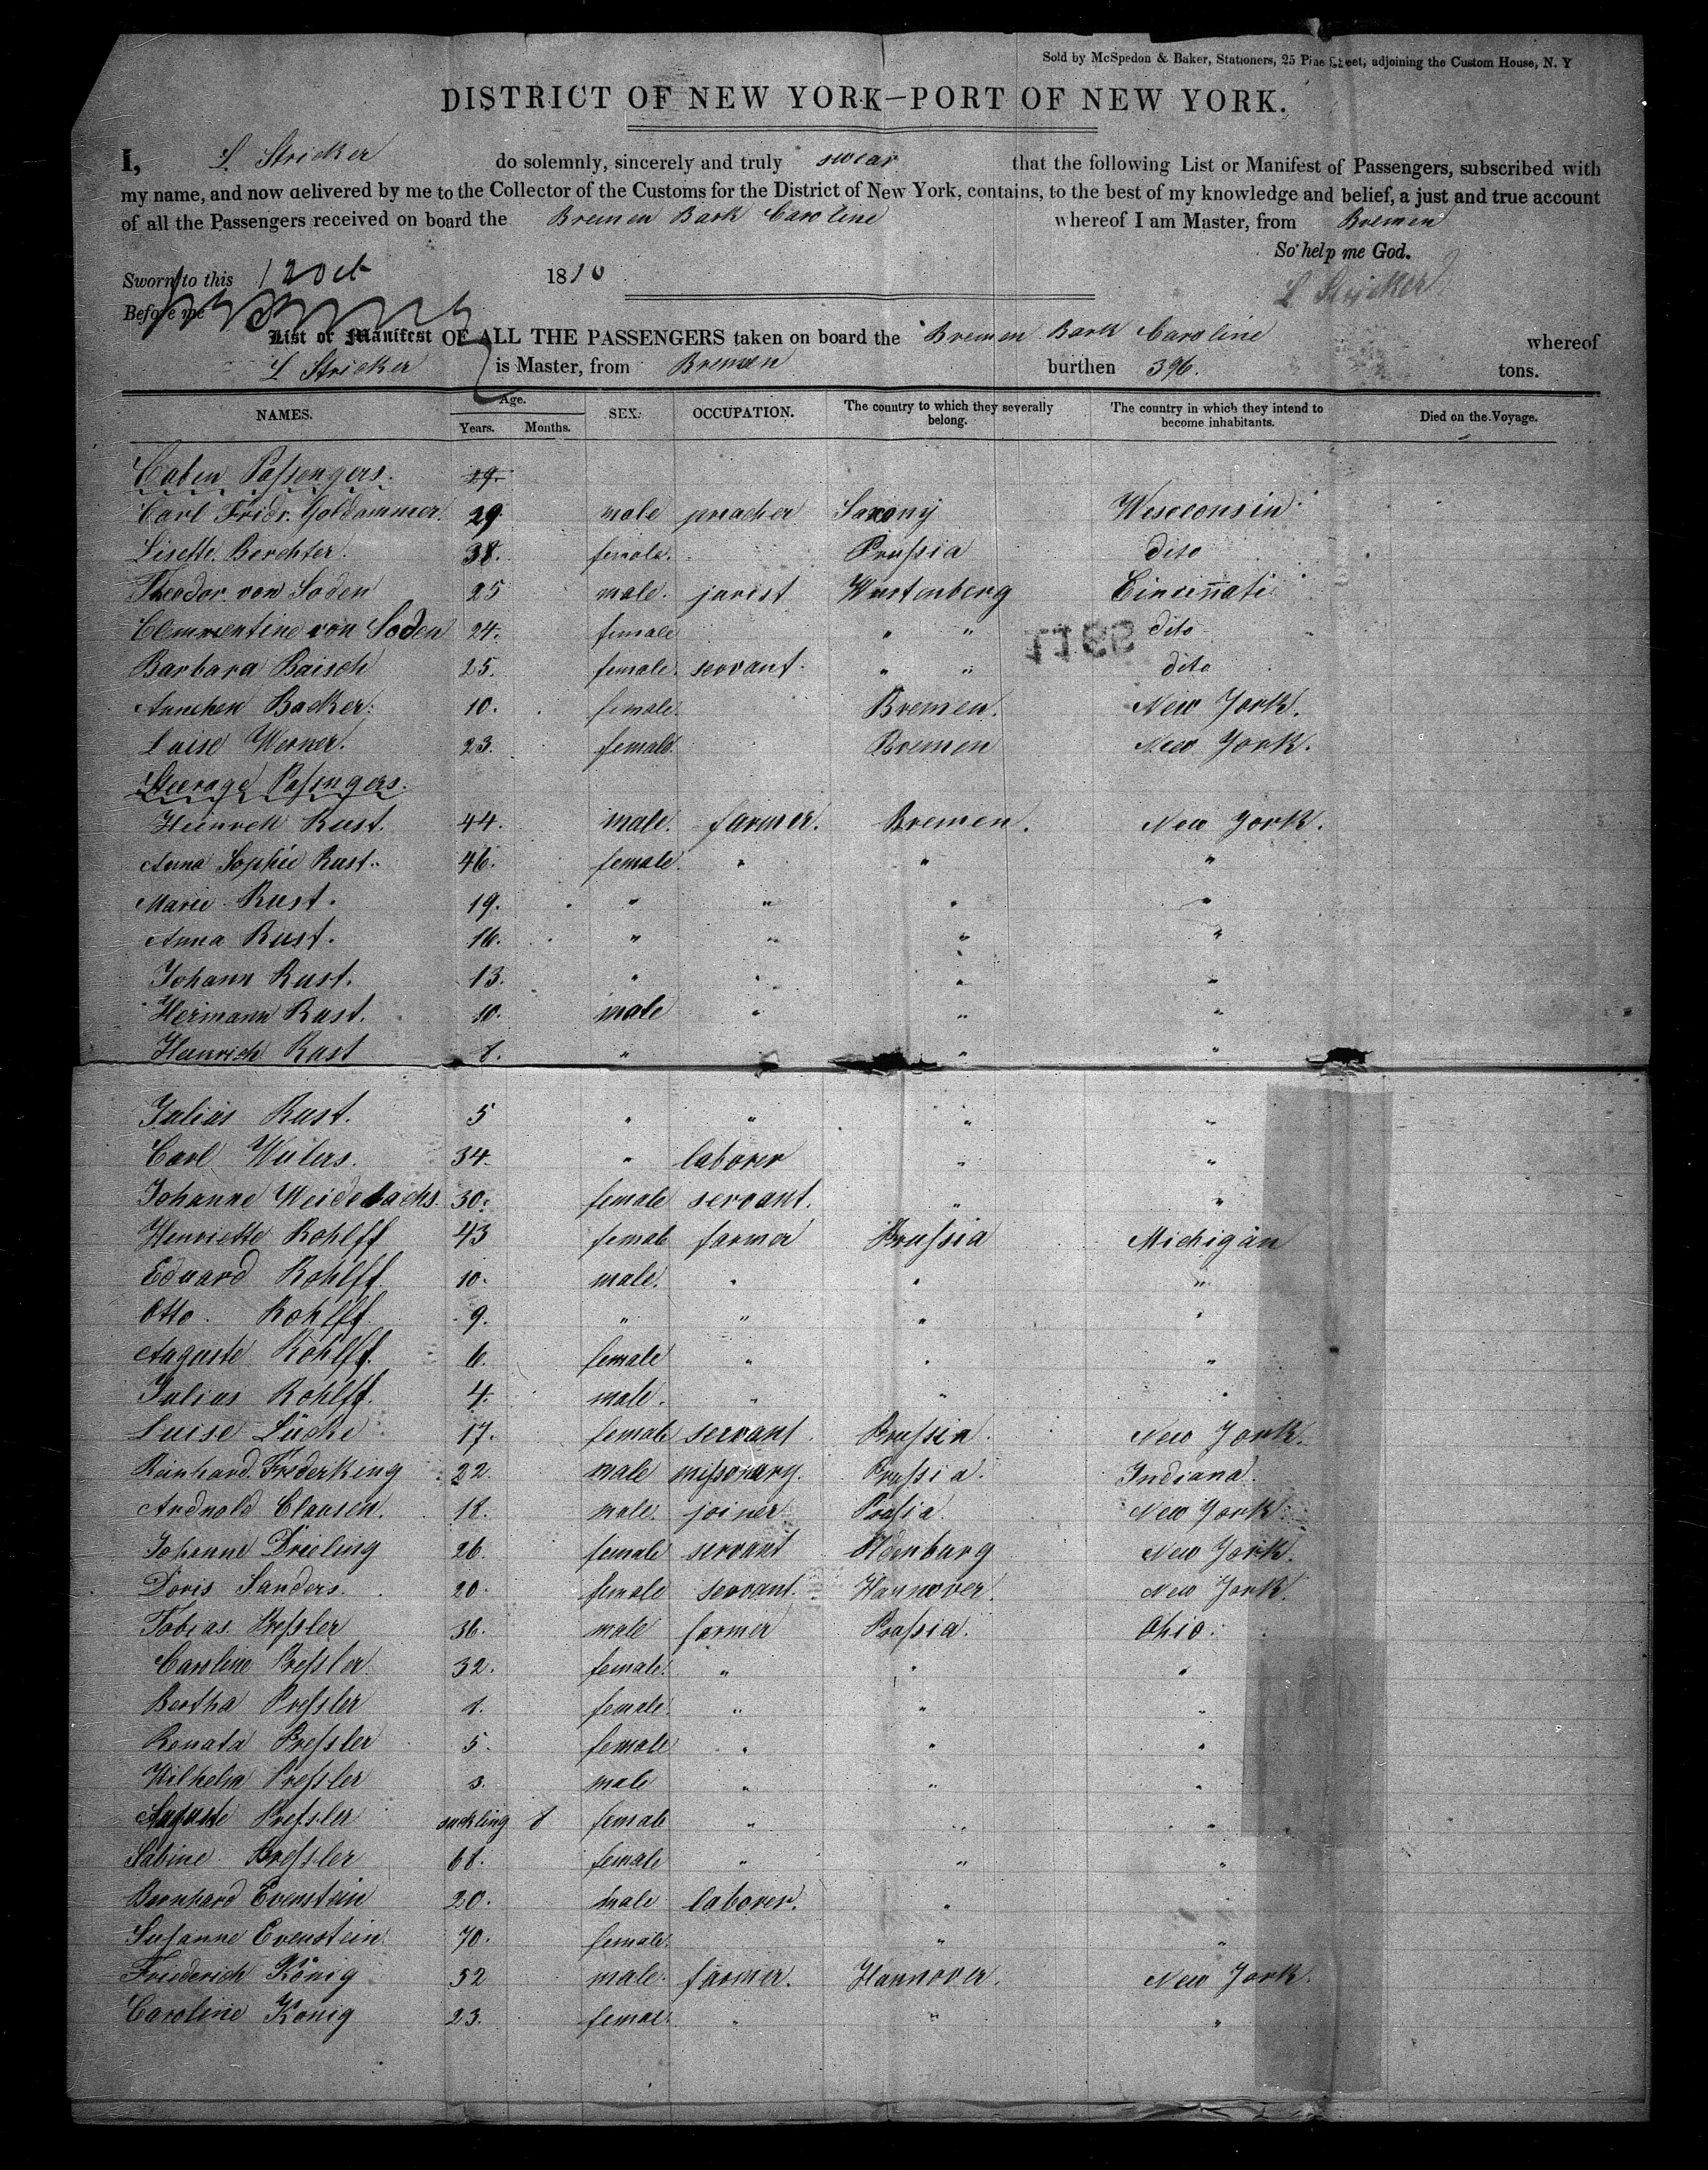 Sold by McSpedon & Baker, Stationers, 25 Pine Street, adjoining the Custom House, N. Y
DISTRICT OF NEW YORK—PORT OF NEW YORK.
I, L. Stricker do solemnly, sincerely and truly swear that the following List or Manifest of Passengers, subscribed with
my name, and now delivered by me to the Collector of the Customs for the District of New York, contains, to the best of my knowledge and belief, a just and true account
of all the Passengers received on board the Bremen Bark Caroline whereof I am Master, from Bremen
So help me God.
Sworn to this 12 Oct 18
L Stricker
Before me
List or Manifest OF ALL THE PASSENGERS taken on board the Bremen Bark Caroline whereof
L Stricker is Master, from Bremen burthen 396. tons.
NAMES. Age. SEX. OCCUPATION. The country to which they severally belong. The country in which they intend to become inhabitants. Died on the Voyage.
Years. Months.
Caben Passengers. 29.
Carl Fridr. Goldammer. 29 male preacher Saxony Wesconsin
Lisette Berchter. 38. female. Prussia dito
Theodor von Soden 25 male. jurist Wurtenberg Cincinnati
Clementine von Soden 24. female " " dito
1166
Barbara Baisch 25. female. servant. " " dito
Annchen Backer. 10. female. Bremen. New York.
Luise Werner. 23. female. Bremen New York.
Steerage Passengers.
Heinrich Rust. 44. male. farmer. Bremen. New York.
Anna Sophie Rust. 46. female. " " "
Marie Rust. 19. " " " "
Anna Rust. 16. " " " "
Johann Rust. 13. " " " "
Hermann Rust. 10. male " " "
Heinrich Rust 8. " " "
Julius Rust. 5 " " " "
Carl Weilers. 34. " laborer " "
Johanne Weidebachs. 30. female servant. " "
Henriette Rohlff 43 female farmer Prussia Michigan
Eduard Rohlff 10. male. " " "
Otto. Rohlff 9. " " " "
Auguste Rohlff. 6. female " " "
Julius Rohlff. 4. male. " " "
Luise Lücke 17. female servant. Prussia. New York.
Reinhard Frederking 22. male missonary. Prussia. Indiana.
Ardnold Clausen. 18. male. joiner Prussia. New York.
Johanne Drieling 26. female servant Oldenburg New York.
Doris Sanders. 20. female servant. Hannover. New York.
Tobias Pressler 36. male farmer Prussia. Ohio.
Caroline Pressler 32. female. " " "
Bertha Pressler 8. female. " " "
Renata Pressler 5. female " " "
Wilhelm Pressler 3. male " " "
Auguste Pressler suckling 8 female " " "
Sabine Pressler 68. female " " "
Bernhard Evenstein 20. male laborer. " "
Susanne Evenstein 70. female. " "
Friederich König 52 male. farmer. Hannover. New York.
Caroline König 23. female. " " "